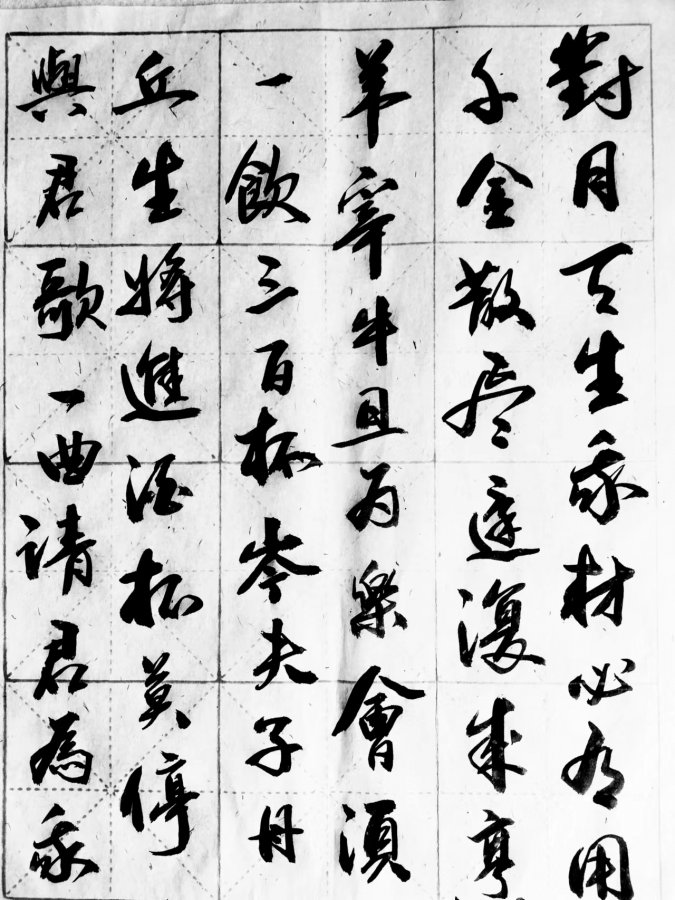 對月天生我材必有用
千金散尽還復来烹
羊宰牛且为樂會須
一飲三百杯岑夫子丹
丘生將進酒杯莫停
與君歌一曲請君為我